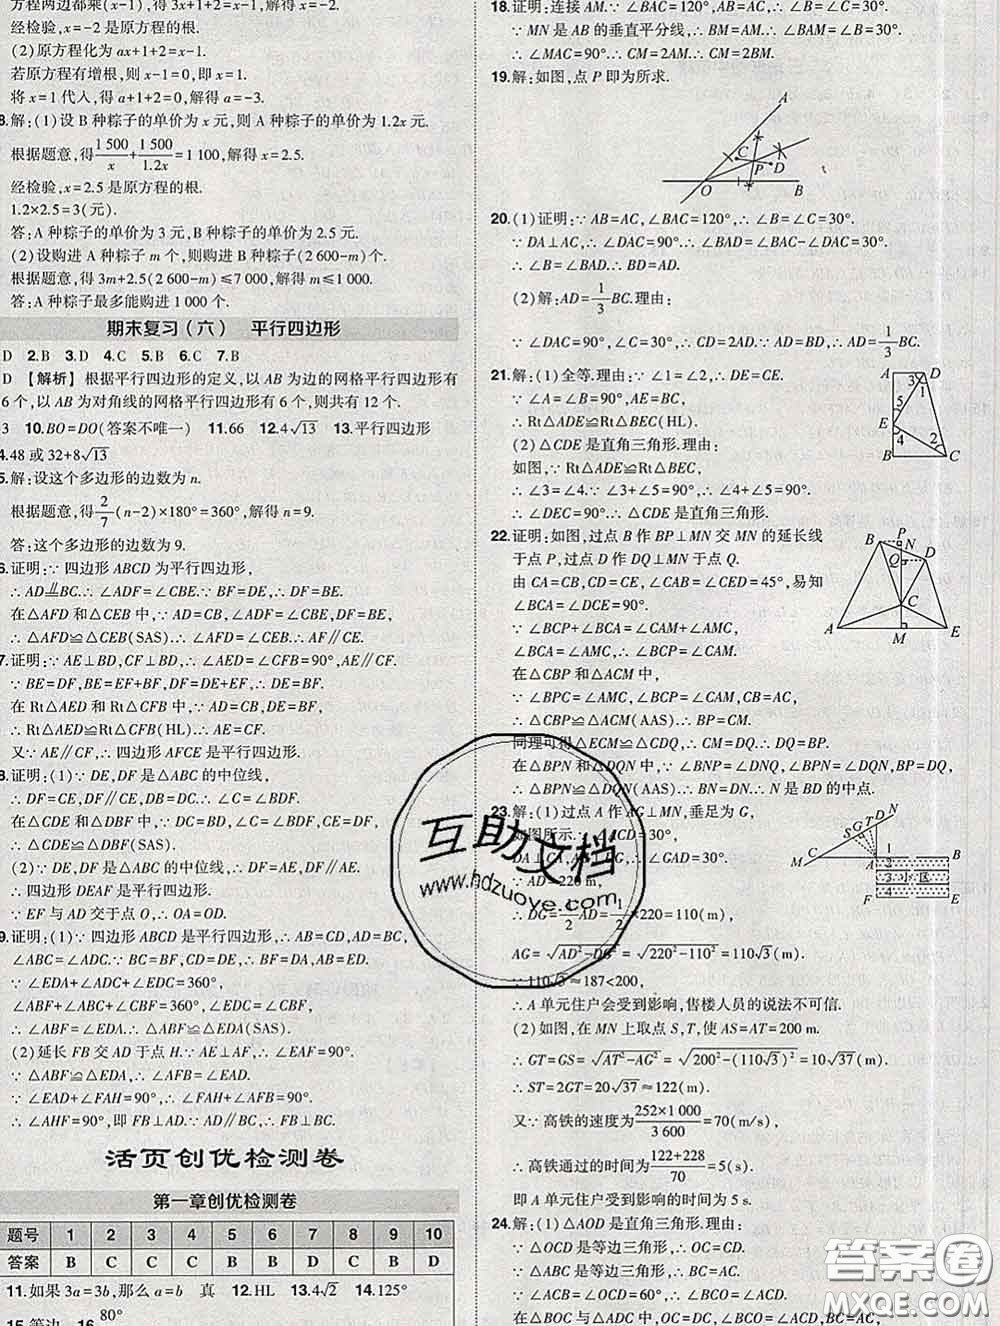 方程两边都乘(x-1),得3x=a+x-1.
经检验,x=-2是原方程的根.
(2)原方程化为ax+1+2=x-1.
若原方程有增根,则x-1=0,即x=1.
将x=1代入,得a+1+2=0,解得a=-3.
8.解:(1)设B种粽子的单价为x元,则A种粽子的单价为1.2x元.
根据题意,得1 500/x+1 500/1.2x=1 100,解得x=2.5.
经检验,x=2.5是原方程的根.
1.2×2.5=3(元).
答:A种粽子的单价为3元,B种粽子的单价为2.5元.
(2)设购进A种粽子m个,则购进B种粽子(2 600-m)个.
根据题意,得3m+2.5(2 600-m)≤7 000,解得m≤1 000.
答:A种粽子最多能购进1 000个.
期末复习(六) 平行四边形
D 2.B 3.D 4.C 5.C 6.C 7.B
D 【解析】根据平行四边形的定义,以AB为边的网格平行四边形有
6个,以AB为对角线的网格平行四边形有6个,则共有12个.
3 10.BO=DO(答案不唯一) 11.66 12.4√13 13.平行四边形
4.48或32+8√13
5.解:设这个多边形的边数为n.
根据题意,得2/7(n-2)×180°=360°,解得n=9.
答:这个多边形的边数为9.
6.证明:∵四边形ABCD为平行四边形,
∴AD∥=BC.∴∠ADF=∠CBE.∵BF=DE,∴DF=BE.
在△AFD和△CEB中,∵AD=CB,∠ADF=∠CBE,DF=BE,
∴△AFD≌△CEB(SAS).∴∠AFD=∠CEB.∴AF∥CE.
7.证明:∵AE⊥BD,CF⊥BD,∴∠AED=∠CFB=90°,AE∥CF.
∵BE=DF,BE+EF=DF+EF,∴DE=BF.
在Rt△AED和Rt△CFB中,∵AD=BC,DE=BF,
∴Rt△AED≌Rt△CFB(HL).∴AE=CF.
又∵AE∥CF,∴四边形AFCE是平行四边形.
8.证明:(1)∵DE,DF是△ABC的中位线,
∴DF=CE,DF∥CE.∴∠C=∠BDF.
在△CDE和△DBF中,∵DC=BD,∠C=∠BDF,CE=DF,
∴△CDE≌△DBF(SAS).
(2)∵DE,DF是△ABC的中位线,∴DF=AE,DF∥AE.
∴四边形DEAF是平行四边形.
∵EF与AD交于点O,∴OA=OD.
9.证明:(1)∵四边形ABCD是平行四边形,∴AB=CD,AD=BC,
∠ABC=∠ADC.∵BC=BF,CD=DE,∴BF=AD,AB=DE.
∵∠EDA+∠ADC+∠EDC=360°,
∠ABF+∠ABC+∠CBF=360°,∠EDC=∠CBF,
∴∠ABF=∠EDA.∴△ABF≌△EDA(SAS).
(2)延长FB交AD于点H.∵AE⊥AF,∴∠EAF=90°.
∵△ABF≌△EDA,∴∠AFB=∠EAD.
∵∠EAD+∠FAH=90°,∴∠FAH+∠AFB=90°.
∴∠AHF=90°,即FB⊥AD.∵AD∥BC,∴FB⊥BC.
活页创优检测卷
第一章创优检测卷
题号 1 2 3 4 5 6 7 8 9 10
答案 B C C C B B D C B D
11.如果3a=3b,那么a=b 真 12.HL 13.4√2 14.125°
15.等边 16.80°
18.证明:连接AM.∵∠BAC=120°,AB=AC,∴∠B=∠C=30°.
∵MN是AB的垂直平分线,∴BM=AM.∴∠BAM=∠B=30°.
∴∠MAC=90°.∴CM=2AM.∴CM=2BM.
19.解:如图,点P即为所求.
A
C
P
D
O
B
20.(1)证明:∵AB=AC,∠BAC=120°,∴∠B=∠C=30°.
∵DA⊥AC,∴∠DAC=90°.∴∠BAD=∠BAC-∠DAC=30°.
∴∠B=∠BAD.∴BD=AD.
(2)解:AD=1/3BC.理由:
∵∠DAC=90°,∠C=30°,∴CD=2AD.∵AD=BD,∴AD=1/3BC.
21.解:(1)全等.理由:∵∠1=∠2,∴DE=CE.
∵∠A=∠B=90°,AE=BC,
∴Rt△ADE≌Rt△BEC(HL).
(2)△CDE是直角三角形.理由:
如图,∵Rt△ADE≌Rt△BEC,
∴∠3=∠4.∵∠3+∠5=90°,∴∠4+∠5=90°.
∴∠DEC=90°.∴△CDE是直角三角形.
A D
3 1
5
E
4 2
B C
22.证明:如图,过点B作BP⊥MN交MN的延长线
于点P,过点D作DQ⊥MN于点Q.
由CA=CB,CD=CE,∠CAB=∠CED=45°,易知
∠BCA=∠DCE=90°.
∵∠BCP+∠BCA=∠CAM+∠AMC,
∠BCA=∠AMC,∴∠BCP=∠CAM.
在△CBP和△ACM中,
∵∠BPC=∠AMC,∠BCP=∠CAM,BC=CA,
∴△CBP≌△ACM(AAS).∴BP=CM.
同理可得△ECM≌△CDQ,∴CM=DQ.∴DQ=BP.
在△BPN和△DQN中,∵∠BNP=∠DNQ,∠BPN=∠DQN,BP=DQ,
∴△BPN≌△DQN(AAS).∴BN=DN.∴N是BD的中点.
B P
N D
Q
C
A M E
23.解:(1)过点A作AG⊥MN,垂足为G,
如图所示.∵∠ACD=30°,
DA⊥CA,∴∠ADC=60°.∴∠GAD=30°.
∵AD=220 m,
∴DG=1/2AD=1/2×220=110(m),
AG=√AD²-DG²=√220²-110²=110√3(m).
∵110√3≈187<200,
∴A单元住户会受到影响,售楼人员的说法不可信.
(2)如图,在MN上取点S,T,使AS=AT=200 m,
∴GT=GS=√AT²-AG²=√200²-(110√3)²=10√37(m).
∴ST=2GT=20√37≈122(m).
又∵高铁的速度为252×1 000/3 600=70(m/s),
∴高铁通过的时间为122+228/70=5(s).
即A单元住户受到影响的时间为5 s.
S G T D N
M C A 1 B
2
3 小 区
F 4 E
24.解:(1)△AOD是直角三角形.理由:
∵△OCD是等边三角形,∴OC=CD.
∵△ABC是等边三角形,∴BC=AC.
在△BOC与△ADC中,∵∠BCO=∠ACD,BC=AC,
互助文档
www.hdzuoye.com
答案圈
MXQE.COM